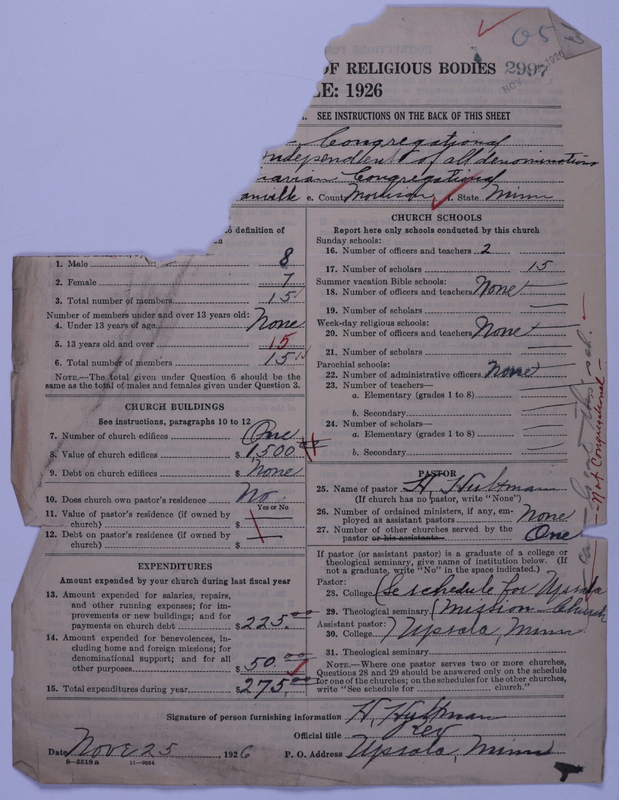 05
OF RELIGIOUS BODIES 2997
NOV 1926
LE: 1926
SEE INSTRUCTIONS ON THE BACK OF THIS SHEET
Congregational
Independent of all denominations
Congregational
e. County Morrison f. State Minn
definition of
1. Male 8
2. Female 7
3. Total number of members 15
Number of members under and over 13 years old:
4. Under 13 years of age None
5. 13 years old and over 15
6. Total number of members 15
NOTE.—The total given under Question 6 should be
same as the total of males and females given under Question 3.
CHURCH BUILDINGS
See instructions, paragraphs 10 to 12
7. Number of church edifices One
8. Value of church edifices $ 1,500.00
9. Debt on church edifices $ None
10. Does church own pastor's residence No
Yes or No
11. Value of pastor's residence (if owned by
church) $
12. Debt on pastor's residence (if owned by
church) $
EXPENDITURES
Amount expended by your church during last fiscal year
13. Amount expended for salaries, repairs,
and other running expenses; for im-
provements or new buildings; and for
payments on church debt $ 225.00
14. Amount expended for benevolences, in-
cluding home and foreign missions; for
denominational support; and for all
other purposes $ 50.00
15. Total expenditures during year $ 275.00
CHURCH SCHOOLS
Report here only schools conducted by this church
Sunday schools:
16. Number of officers and teachers 2
17. Number of scholars 15
Summer vacation Bible schools:
18. Number of officers and teachers None
19. Number of scholars —
Week-day religious schools:
20. Number of officers and teachers None
21. Number of scholars —
Parochial schools:
22. Number of administrative officers None
23. Number of teachers—
a. Elementary (grades 1 to 8) —
b. Secondary —
24. Number of scholars—
a. Elementary (grades 1 to 8) —
b. Secondary —
PASTOR
25. Name of pastor H. Hultman
(If church has no pastor, write "None")
26. Number of ordained ministers, if any, em-
ployed as assistant pastors None
27. Number of other churches served by the
pastor or his assistants One
If pastor (or assistant pastor) is a graduate of a college or
theological seminary, give name of institution below. (If
not a graduate, write "No" in the space indicated.)
Pastor:
28. College (Se schedule for Upsala
29. Theological seminary (Mission Church
Assistant pastor:
30. College ) Upsala, Minn
31. Theological seminary
NOTE.—Where one pastor serves two or more churches,
Questions 28 and 29 should be answered only on the schedule
for one of the churches; on the schedules for the other churches,
write "See schedule for church."
Not Congregational
Signature of person furnishing information H. Hultman
Official title rev
Date Nove 25, 1926 P. O. Address Upsala, Minn
8—5518 a 11—9054